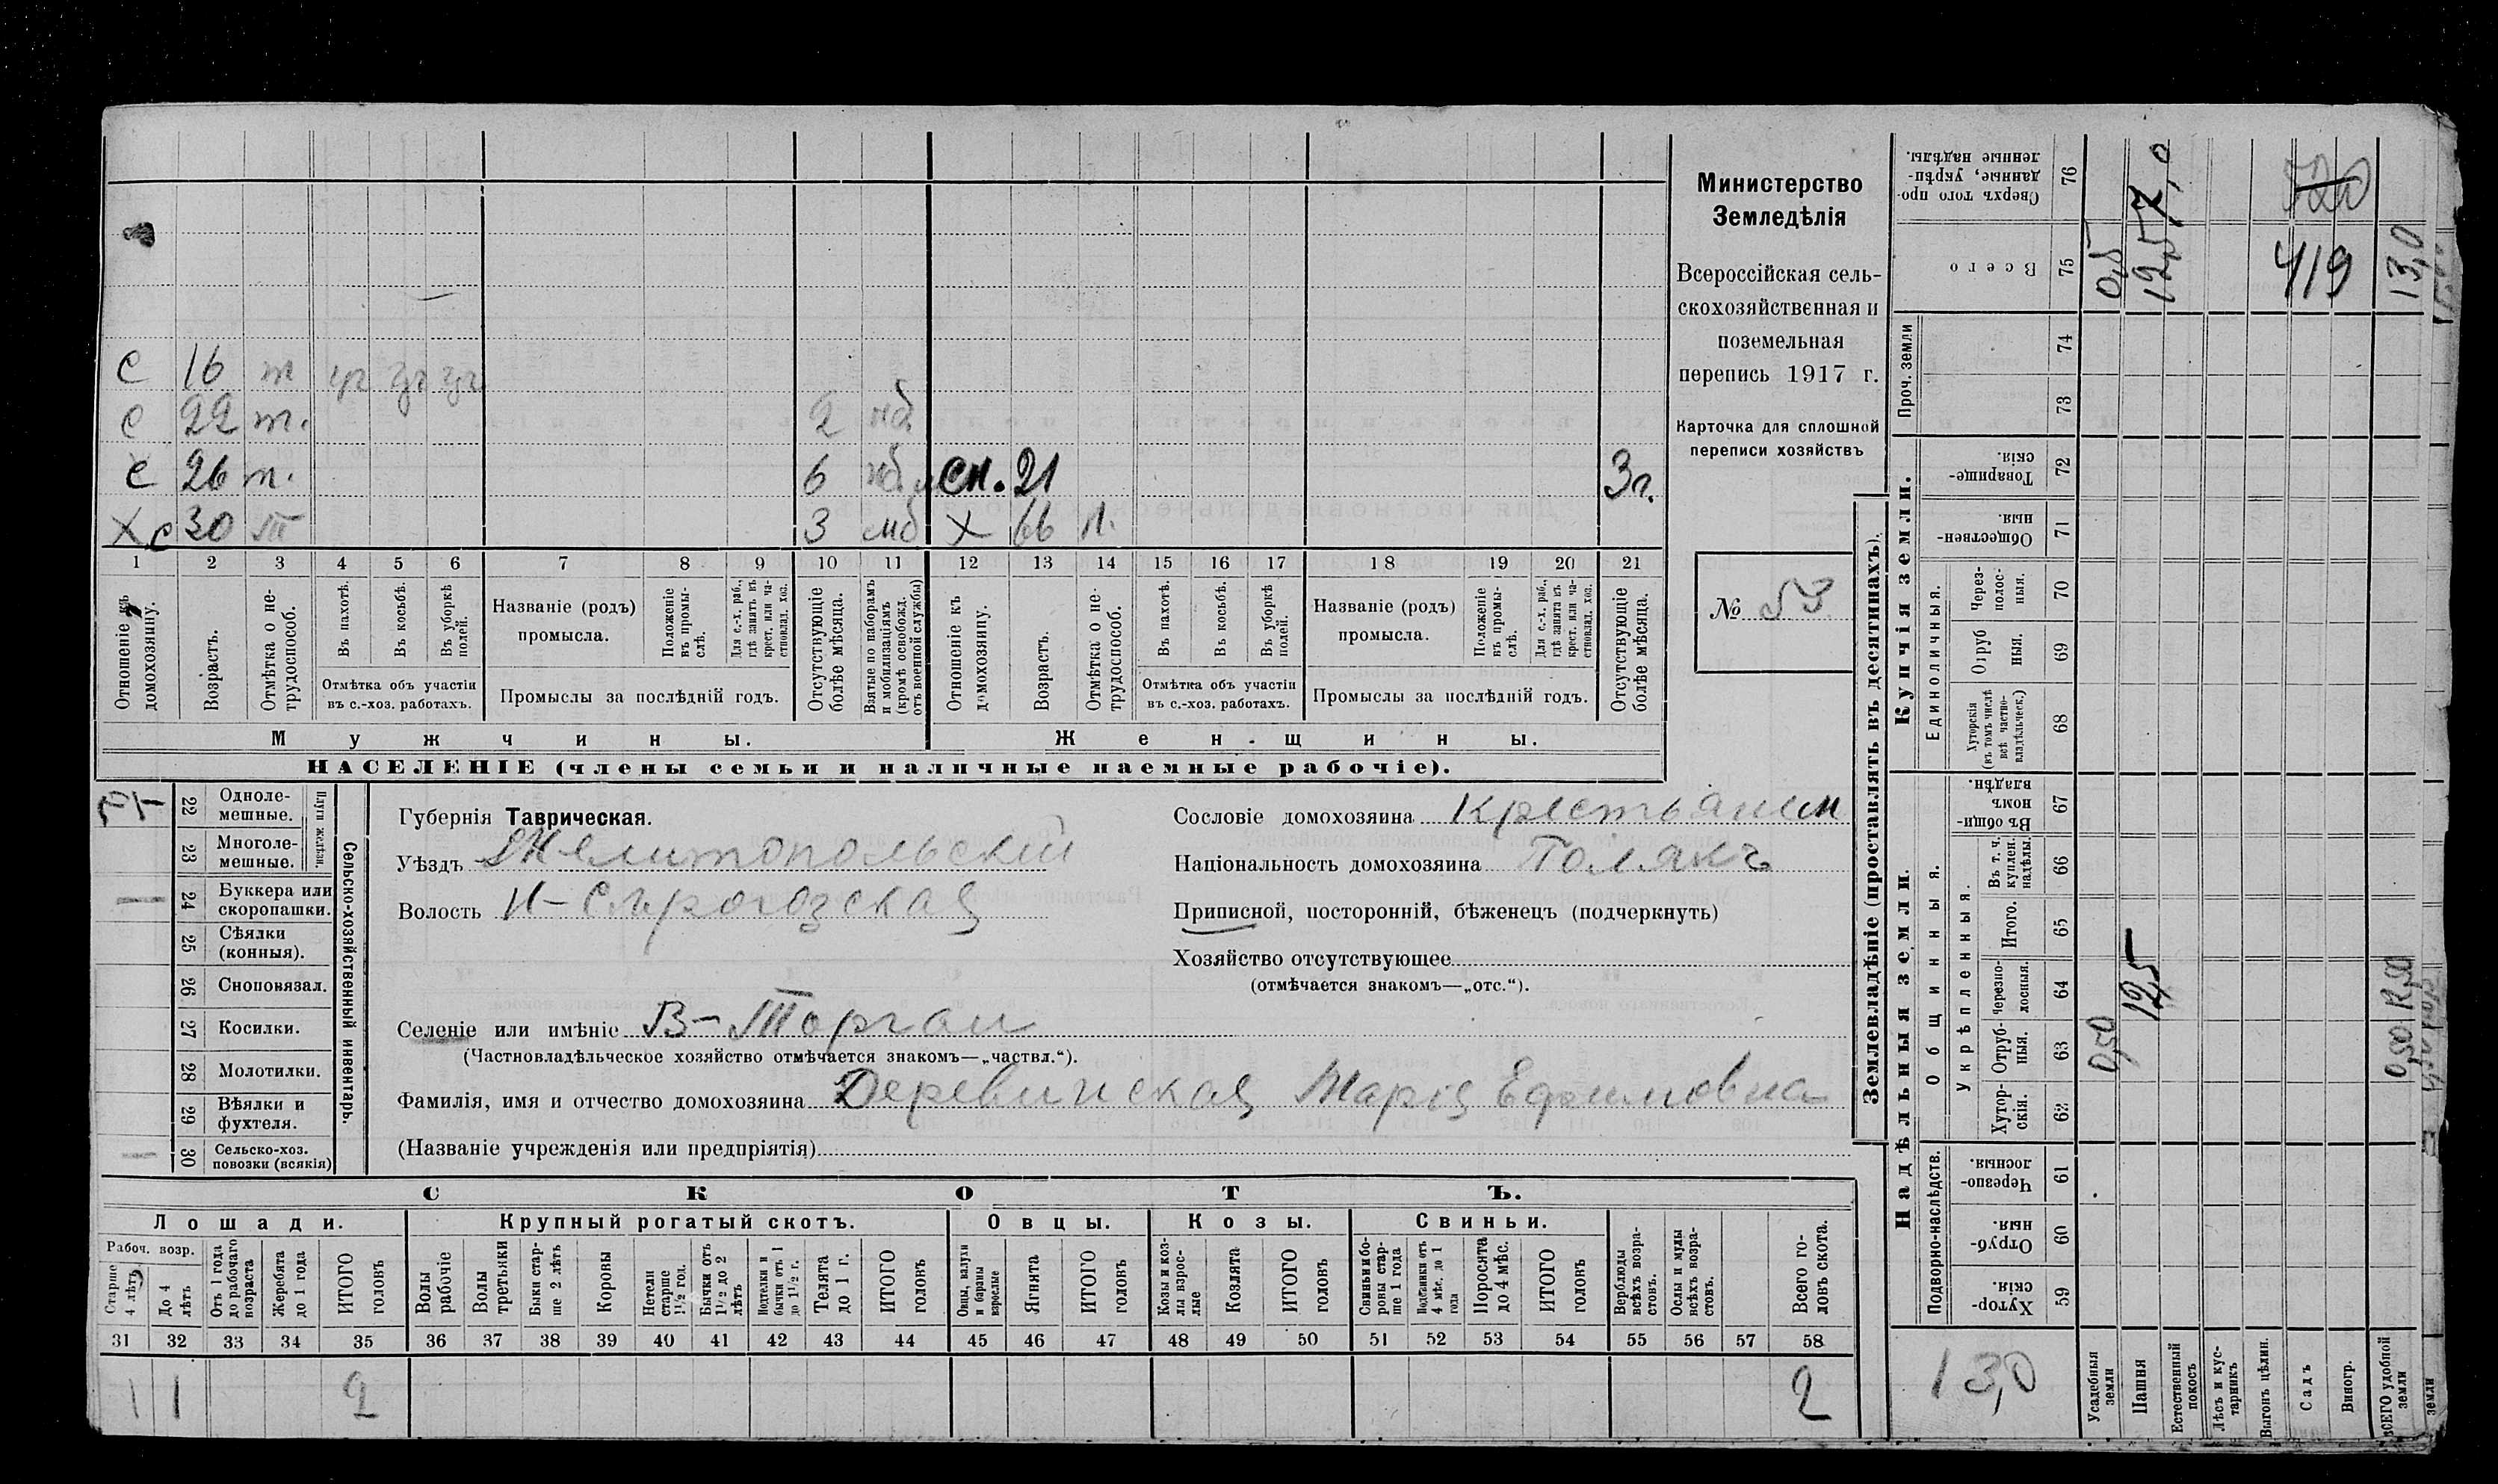 с 16 т уч уч уч
с 22 т. 2 мб
с 26 т. 6 мб сн. 21 3 г.
Х с 30 3 мб Х 66 п.
1 2 3 4 5 6 7 8 9 10 11 12 13 14 15 16 17 18 19 20 21
Отношеніе къ домохозяину.
Возрастъ.
Отмѣтка о нетрудоспособ.
Въ пахотѣ.
Въ косьбѣ.
Въ уборкѣ полей.
Отмѣтка объ участіи въ с.-хоз. работахъ.
Названіе (родъ) промысла.
Положеніе въ промыслѣ.
Для с.-х. раб., гдѣ занятъ въ крест. или частновлад. хоз.
Промыслы за послѣдній годъ.
Отсутствующіе болѣе мѣсяца.
Взятые по наборамъ и мобилизаціямъ (кромѣ освобожд. отъ военной службы)
Отношеніе къ домохозяину.
Возрастъ.
Отмѣтка о нетрудоспособ.
Въ пахотѣ.
Въ косьбѣ.
Въ уборкѣ полей.
Отмѣтка объ участіи въ с.-хоз. работахъ.
Названіе (родъ) промысла.
Положеніе въ промыслѣ.
Для с.-х. раб., гдѣ занята въ крест. или частновлад. хоз.
Промыслы за послѣдній годъ.
Отсутствующіе болѣе мѣсяца.
Мужчины. Женщины.
НАСЕЛЕНІЕ (члены семьи и наличные наемные рабочіе).
Министерство
Земледѣлія
Всероссійская сель-
скохозяйственная и
поземельная
перепись 1917 г.
Карточка для сплошной
переписи хозяйствъ
№ 53
22 Одноле-мешные.
23 Многоле-мешные.
Плуги желѣзн.
24 Буккера или скоропашки.
25 Сѣялки (конныя).
26 Сноповязал.
27 Косилки.
28 Молотилки.
29 Вѣялки и фухтеля.
30 Сельско-хоз. повозки (всякія)
Сельско-хозяйственный инвентарь.
Губернія Таврическая.
Уѣздъ Мелитопольскій
Волость Н-Сѣрогозская
Селеніе или имѣніе В-Торгаи
(Частновладѣльческое хозяйство отмѣчается знакомъ—„частвл.“).
Фамилія, имя и отчество домохозяина Деревинская Марія Ефимовна
(Названіе учрежденія или предпріятія)
Сословіе домохозяина Крестьянин
Національность домохозяина Полякъ
Приписной, посторонній, бѣженецъ (подчеркнуть)
Хозяйство отсутствующее
(отмѣчается знакомъ—„отс.“).
СКОТЪ.
Лошади. Крупный рогатый скотъ. Овцы. Козы. Свиньи.
Рабоч. возр.
Старше 4 лѣтъ
До 4 лѣтъ
Отъ 1 года до рабочаго возраста
Жеребята до 1 года
ИТОГО головъ
Волы рабочіе
Волы третьяки
Быки старше 2 лѣтъ
Коровы
Нетели старше 1½ год.
Бычки отъ 1½ до 2 лѣтъ
Подтелки и бычки отъ 1 до 1½ г.
Телята до 1 г.
ИТОГО головъ
Овцы, валухи и бараны взрослые
Ягнята
ИТОГО головъ
Козы и козлы взрослые
Козлята
ИТОГО головъ
Свиньи и боровы старше 1 года
Подсвинки отъ 4 мѣс. до 1 года
Поросята до 4 мѣс.
ИТОГО головъ
Верблюды всѣхъ возрастовъ.
Ослы и мулы всѣхъ возрастовъ.
Всего головъ скота.
31 32 33 34 35 36 37 38 39 40 41 42 43 44 45 46 47 48 49 50 51 52 53 54 55 56 57 58
1 1 2 2
Землевладѣніе (проставлять въ десятинахъ).
Купчія земли.
Надѣльныя земли.
Сверхъ того проданные, укрѣпленные надѣлы. 76 720
Всего 75 0,5 12,5 419 13,0
Проч. земли 74
73
Товарищескія. 72
Общественныя. 71
Единоличныя.
Черезполосныя. 70
Отрубныя. 69
Хуторскія (въ томъ числѣ всѣ частновладѣльческ.) 68
Въ общинномъ владѣн. 67
Общинныя.
Укрѣпленныя.
Въ т. ч. куплен. надѣлы. 66
Итого. 65
Черезполосныя. 64 12,5
Отрубныя. 63 0,50
Хуторскія. 62
Подворно-наслѣдств.
Черезполосныя. 61
Отрубныя. 60
Хуторскія. 59
13,0
Усадебныя земли
Пашня
Естественный покосъ
Лѣсъ и кустарникъ
Выгонъ цѣлин.
Садъ
Виногр.
ВСЕГО удобной земли
земли